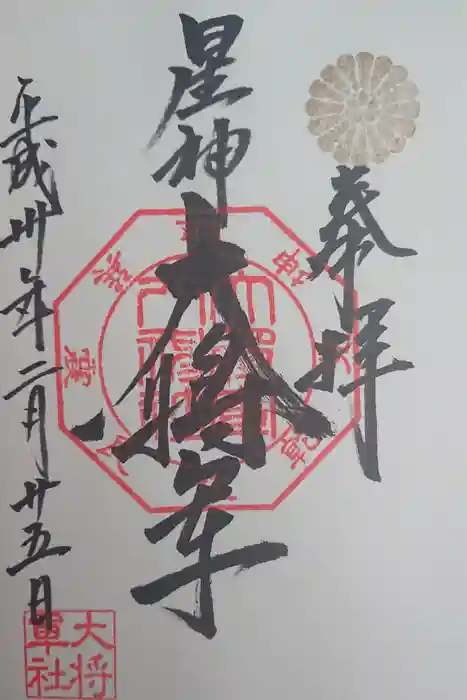 奉拝
星神
大将軍
平成丗年二月廿五日
大将
軍社